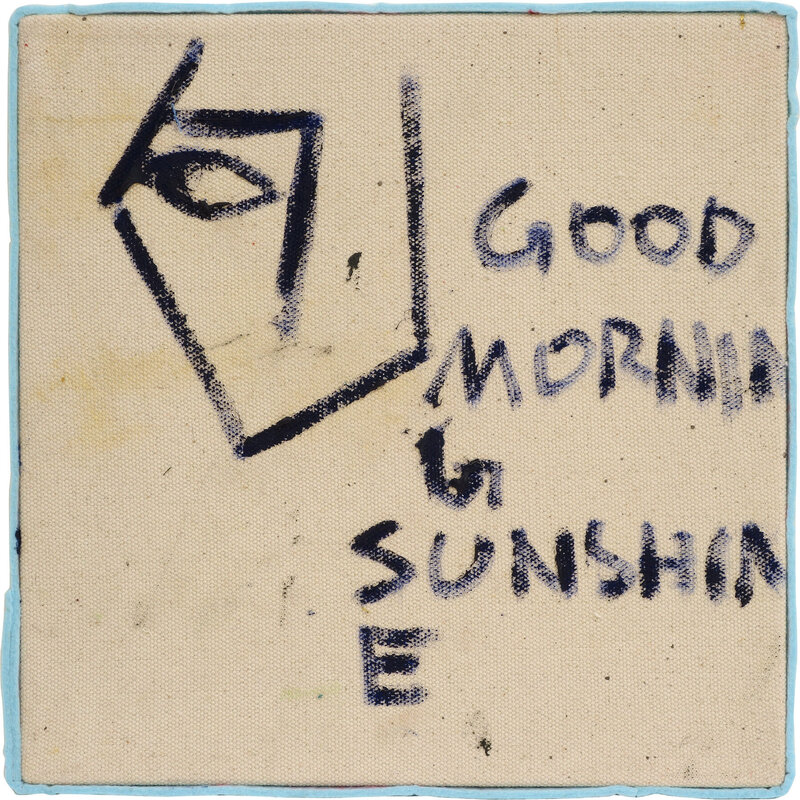 GOOD
MORNIN
G
SUNSHIN
E